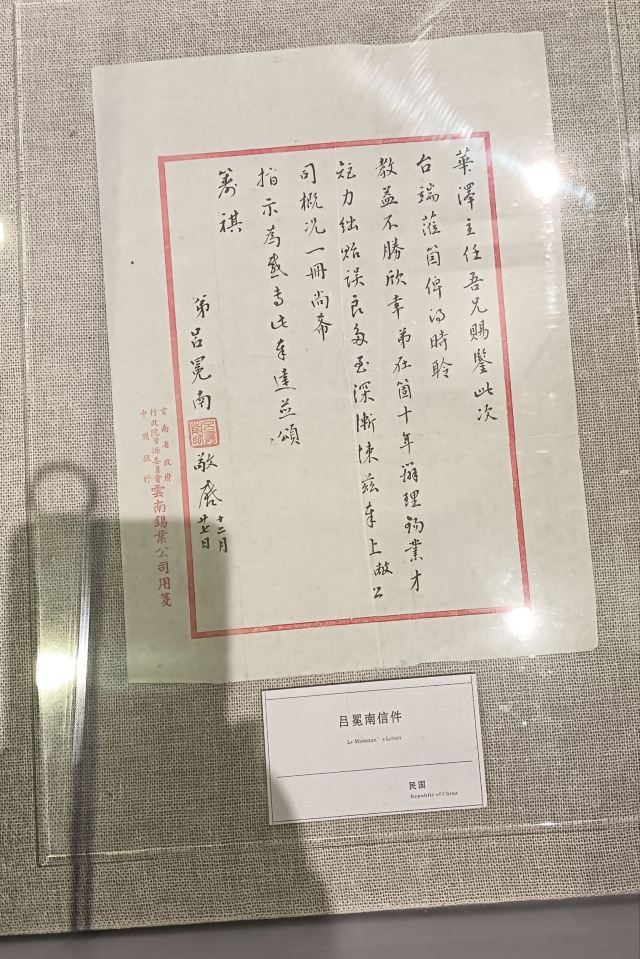 華澤主任吾兄賜鑒此次
台端蒞箇俾得時聆
教益不勝欣幸弟在箇十年辦理錫業才
短力絀貽誤良多至深慚悚茲奉上敝公
司概況一冊尚希
指示為感專此奉達並頌
籌祺
弟呂冕南敬啓十二月廿七日
雲南省政府
行政院資源委員會
中國銀行
雲南錫業公司用箋
吕冕南信件
Lv Miannan's Letter
民国
Republic of China